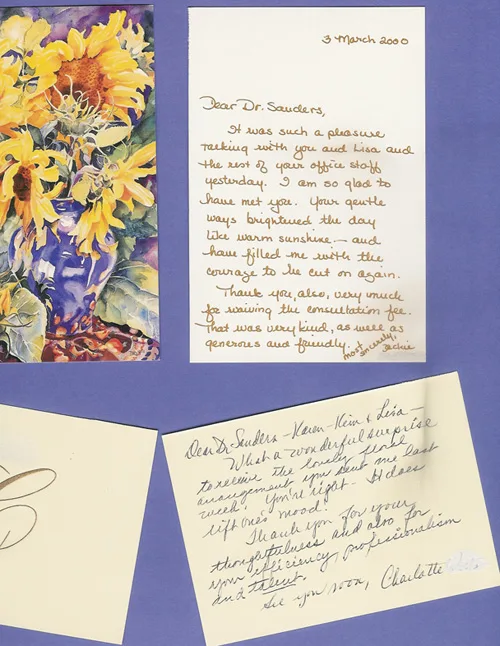 3 March 2000
Dear Dr. Sanders,
It was such a pleasure
talking with you and Lisa and
the rest of your office staff
yesterday. I am so glad to
have met you. Your gentle
ways brightened the day
like warm sunshine — and
have filled me with the
courage to be cut on again.
Thank you, also, very much
for waiving the consultation fee.
That was very kind, as well as
generous and friendly.
most sincerely,
Jackie
Dear Dr. Sanders - Karen - Kim & Lisa -
What a wonderful surprise
to receive the lovely floral
arrangement you sent me last
week! You're right - it does
lift one's mood!
Thank you for your
thoughtfulness and also for
your efficiency, professionalism
and talent.
See you soon, Charlotte